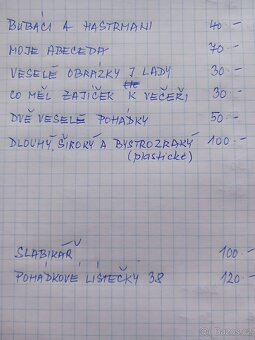 BUBÁCI A HASTRMANI 40.-
MOJE ABECEDA 70.-
VESELÉ OBRÁZKY J. LADY 30.-
CO MĚL ZAJÍČEK K VEČEŘI 30.-
DVĚ VESELÉ POHÁDKY 50.-
DLOUHÝ, ŠIROKÝ A BYSTROZRAKÝ 100.-
(plastické)
SLABIKÁŘ 100.-
POHÁDKOVÉ LÍSTEČKY 38 120.-